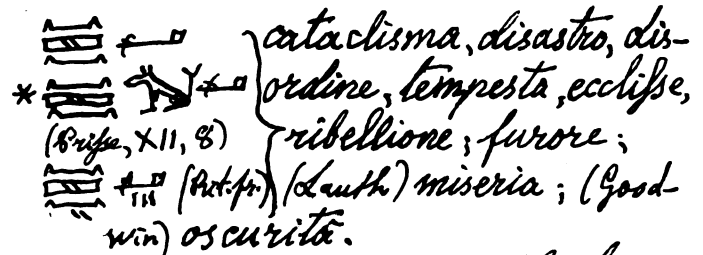 cataclisma, disastro, dis-
* ordine, tempesta, ecclisse,
(Prisse, XII, 8) ribellione; furore;
(Rit. fr.) (Lauth) miseria; (Good-
win) oscurità.